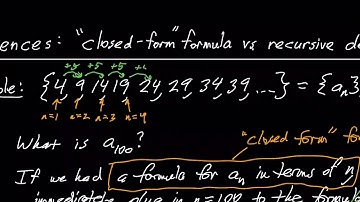 ences: "closed-form" formula vs recursive de
+5 +5 +5 +5
ple: {4, 9, 14, 19, 24, 29, 34, 39, ...} = {an}
n=1 n=2 n=3 n=4
"closed form" fo
What is a100?
If we had a formula for an in terms of n,
immediately plug in n=100 to the formula